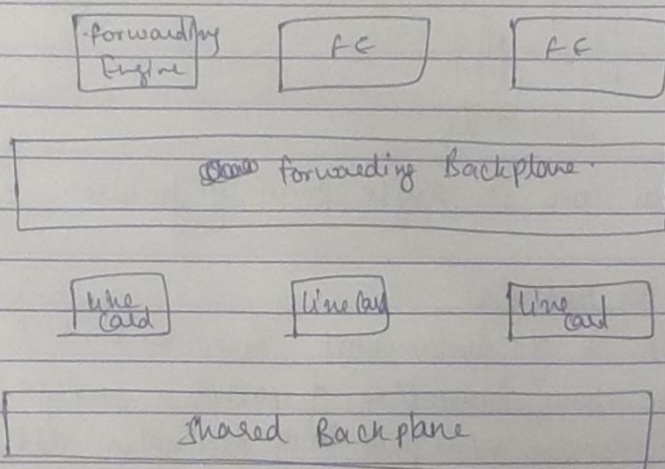 forwarding
Engine
FE
FE
forwarding Backplane.
Line
Card
Line Card
Line
Card
Shared Backplane